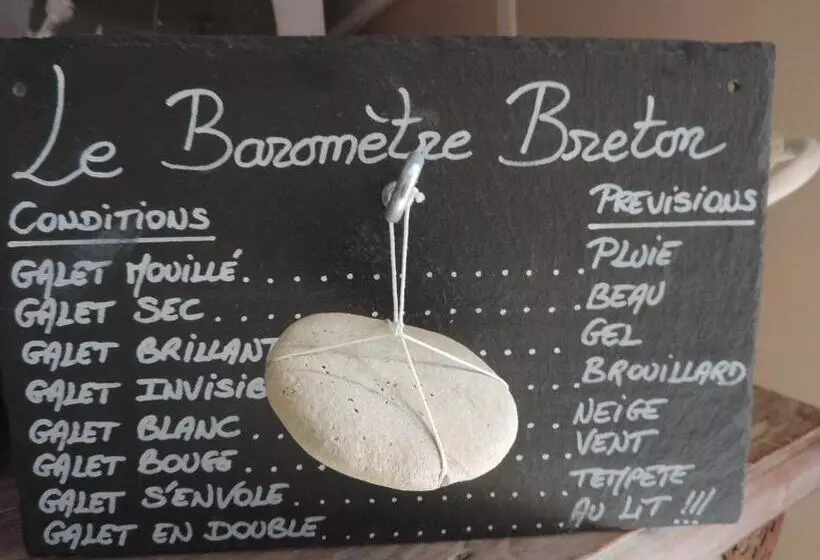 Le Baromètre Breton
CONDITIONS PREVISIONS
GALET MOUILLÉ.............................PLUIE
GALET SEC.............................BEAU
GALET BRILLANT.............GEL
GALET INVISIB.............BROUILLARD
GALET BLANC.............NEIGE
GALET BOUGE.............VENT
GALET S'ENVOLE.............................TEMPETE
GALET EN DOUBLE.............................AU LIT !!!